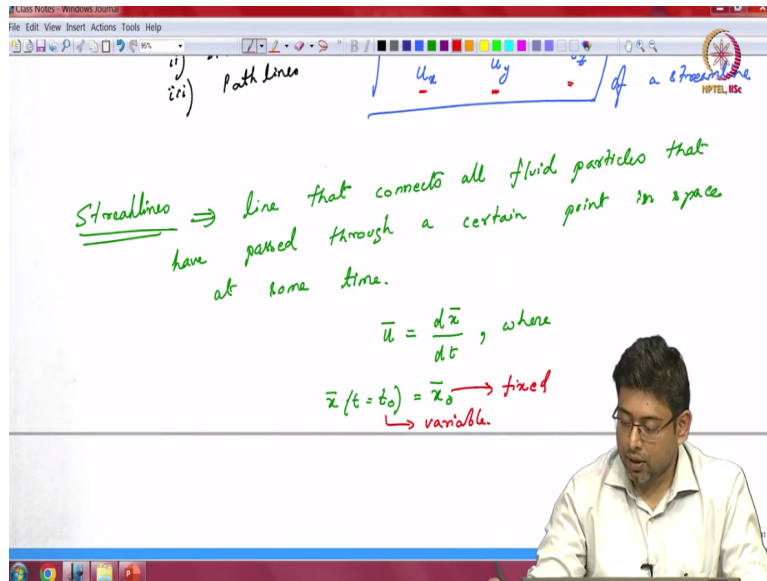 Class Notes - Windows Journal
File Edit View Insert Actions Tools Help
95%
B I
NPTEL, IISc
iii) Path lines
ux uy
of a streamline
Streaklines ⇒ line that connects all fluid particles that
have passed through a certain point in space
at some time.
ū = dx̄/dt , where
x̄ (t = t0) = x̄0 → fixed
↳ variable.